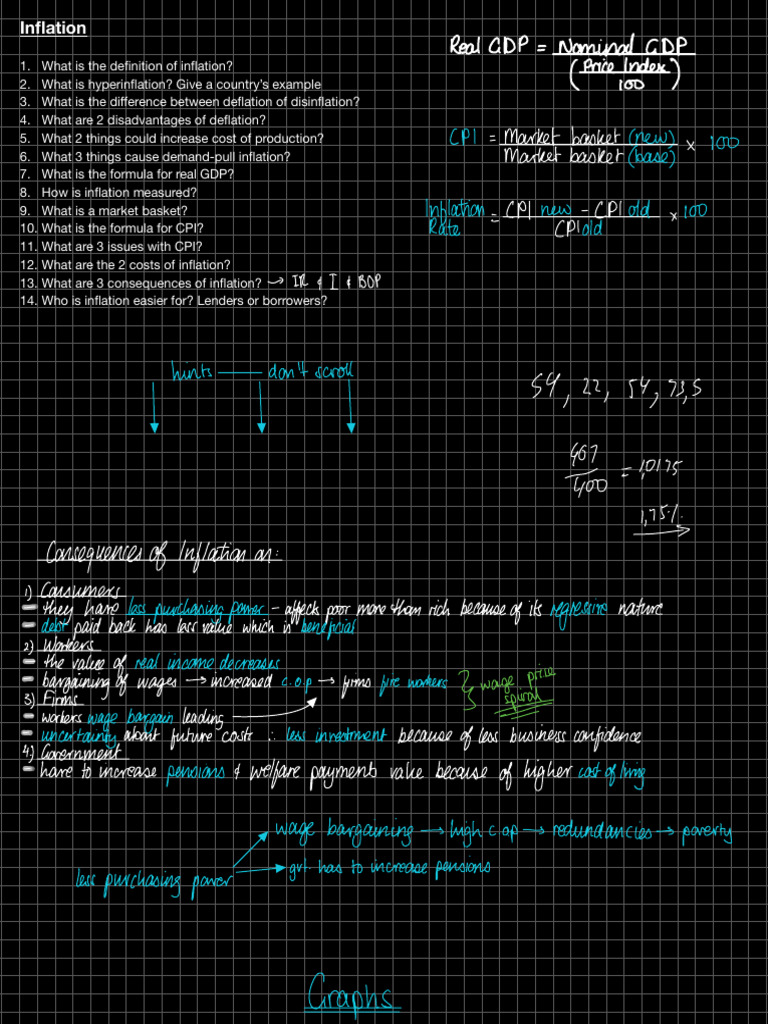 Inflation
1. What is the definition of inflation?
2. What is hyperinflation? Give a country's example
3. What is the difference between deflation of disinflation?
4. What are 2 disadvantages of deflation?
5. What 2 things could increase cost of production?
6. What 3 things cause demand-pull inflation?
7. What is the formula for real GDP?
8. How is inflation measured?
9. What is a market basket?
10. What is the formula for CPI?
11. What are 3 issues with CPI?
12. What are the 2 costs of inflation?
13. What are 3 consequences of inflation? → IR & I & BOP
14. Who is inflation easier for? Lenders or borrowers?
Real GDP = Nominal GDP
(Price Index)
100
CPI = Market basket (new) × 100
Market basket (base)
Inflation Rate = CPI new - CPI old × 100
CPI old
hints — don't scroll
54, 22, 54, 73,5
407
400
= 1,0175
1,75%
Consequences of Inflation on:
1) Consumers
- they have less purchasing power - affect poor more than rich because of its regressive nature
- debt paid back has less value which is beneficial
2) Workers
- the value of real income decreases
- bargaining of wages → increased c.o.p → firms fire workers } wage price spiral
3) Firms
- workers wage bargain leading
- uncertainty about future costs ∴ less investment because of less business confidence
4) Government
- have to increase pensions & welfare payments value because of higher cost of living
wage bargaining → high c op → redundancies → poverty
less purchasing power → gvt. has to increase pensions
Graphs